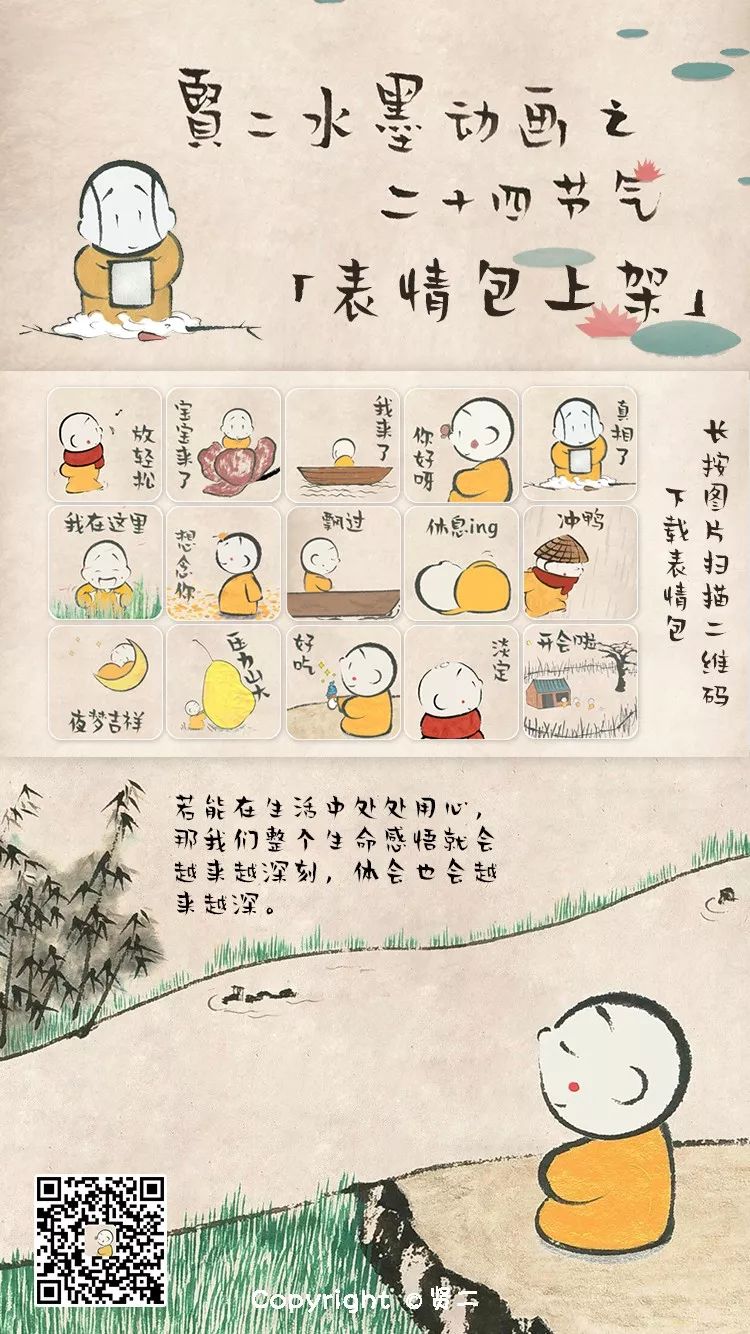 賢二水墨动画之
二十四节气
「表情包上架」
放轻松
宝宝来了
我来了
你好呀
真相了
我在这里
想念你
飘过
休息ing
冲鸭
夜梦吉祥
压力山大
好吃
淡定
开会啦
长按图片扫描二维码
下载表情包
若能在生活中处处用心，
那我们整个生命感悟就会
越来越深刻，体会也会越
来越深。
Copyright © 贤二